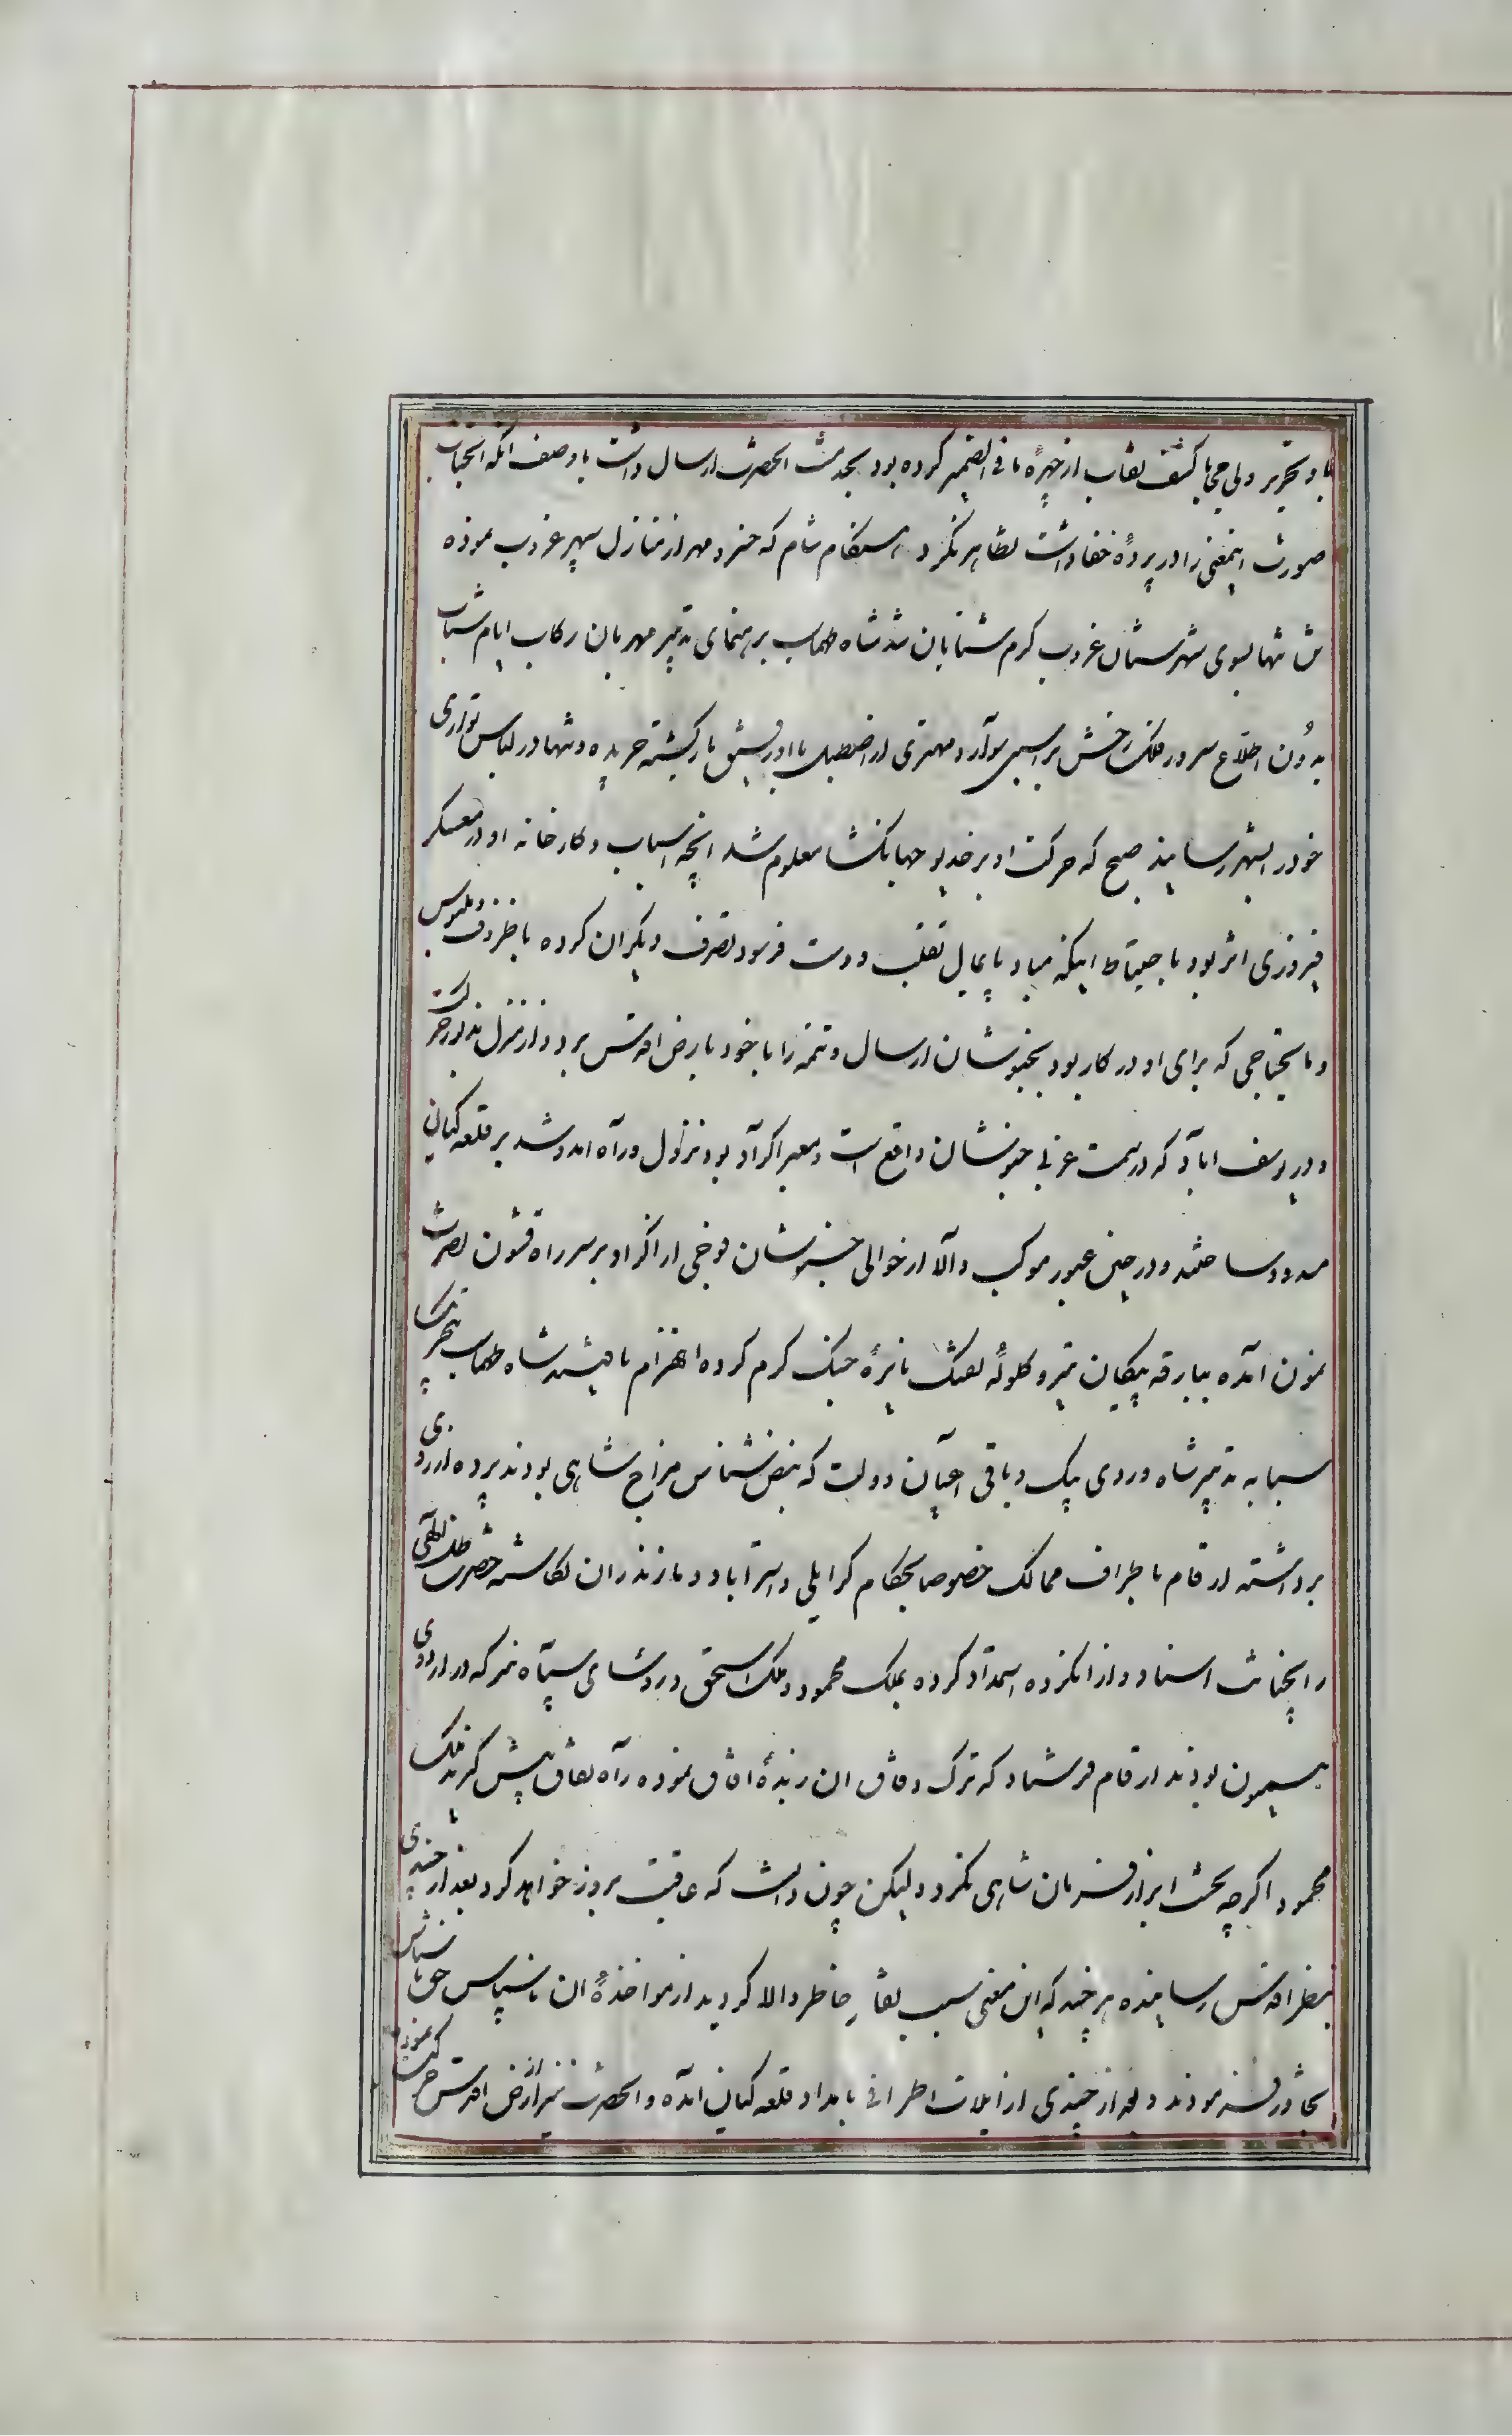 با او تحریر ولی محی با کشف نقاب از چهرهٔ ما فی الضمیر کرده بود بخدمت انحضرت ارسال داشت با وصف انکه انجناب
صورت اینمعنی را در پردهٔ خفا داشت بظاهر نکرد هنکام شام که خسرو مهر از منازل سپهر غروب نموده
تنها بسوی شهرستان غروب کرم شتابان شد شاه طهماسب برهنمای تدبیر مهربان رکاب ایام شباب
بدون اطلاع سرور فلک رخش بر اسبی سوار و مهتری از اصطبل با او رفیق بارکیشته جریده و تنها در لباس تواری
خود را بشهر رسانید صبح که حرکت او بر خدیو جهانکشا معلوم شد انچه اسباب و کارخانه او در معسکر
فیروزی اثر بود باحتیاط اینکه مباد پایمال تقلب و دست فرسود تصرف دیکران کرده با ظروف و ملبوس
و مایحتاجی که برای او در کار بود بخبوشان ارسال و تتمه را با خود بارض اقدس برد و از منزل مذکور حرکت
و در یوسف اباد که در سمت غربی خبوشان واقع است و معبر اکراد بود نزول و راه امد و شد بر قلعه کیان
مسدود ساختند و در حین عبور موکب والا از حوالی خبوشان فوجی از اکراد بر سر راه قشون نصرت
نمون امده ببارقه پیکان تیر و کلوله تفنک نایرهٔ جنک کرم کرده انهزام یافتند شاه طهماسب بتحریک
سبابه تدبیر شاه وردی بیک و باقی اعیان دولت که نبض شناس مزاج شاهی بودند پرده از روی
برداشته ارقام باطراف ممالک خصوصا بحکام کرایلی و استراباد و مازندران نکاشته حضرت ظل اللهی
را بخیانت اسناد و از انکرده استمداد کرده بملک محمود و ملک اسحق و روسای سپاه نیز که در اردوی
همیون بودند ارقام فرستاد که ترک وفاق ان زبدهٔ افاق نموده راه نفاق پیش کیرند ملک
محمود اکرچه بحث ابراز فرمان شاهی نکرد ولیکن چون دانست که عاقبت بروز خواهد کرد بعد از چندی
بنظر اقدس رسانیده هرچند که این معنی سبب نقار خاطر والا کردید از مواخذهٔ ان ناسپاس حق ناشناس
تجاوز فرمودند و بعد از چندی از ایلات اطراف بامداد قلعه کیان امده و انحضرت نیز از ارض اقدس حرکت نموده